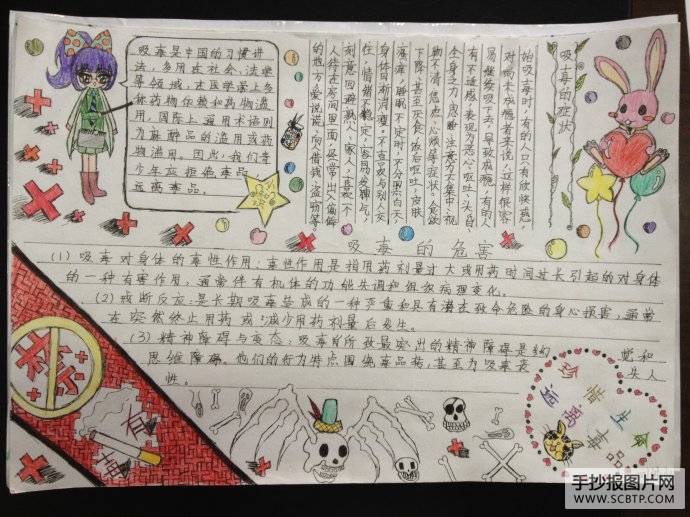 吸毒是中国的习惯讲
法，多用在社会、法学
等领域，在医学界上多
称药物依赖和药物滥
用，国际上通用术语则
为麻醉品的滥用或药
物滥用。因此，我们青
少年应拒绝毒品，
远离毒品。
吸毒的症状
始吸士毒时，有的人只有欣快感，
对尚未成瘾者来说，这样很容
易继续吸下去，导致成瘾，有的人
有不适感，表现为恶心、呕吐、头昏、
全身乏力、思睡、注意力不集中、视
物不清、焦虑、心烦等症状，食欲
下降，甚至厌食，饭后呕吐，皮肤
瘙痒，睡眠不定时，不分黑白天，
身体日渐消瘦。不喜欢与别人交
往，情绪不稳定，容易发脾气，
刻意回避熟人、家人，喜欢一个
人待在房间里面，经常出入偏僻
的地方，爱说谎，向人借钱，盗窃等。
吸毒的危害
(1) 吸毒对身体的毒性作用：毒性作用是指用药剂量过大或用药时间过长引起的对身体
的一种有害作用，通常伴有机体的功能失调和组织病理变化。
(2) 戒断反应：是长期吸毒造成的一种严重和具有潜在致命危险的身心损害，通常
在突然终止用药或减少用药剂量后发生。
(3) 精神障碍与变态：吸毒所致最突出的精神障碍是幻觉和
思维障碍。他们的行为特点围绕毒品转，甚至为吸毒丧失人
性。
禁
有毒
珍惜生命
远离毒品
手抄报图片网
WWW.SCBTP.COM